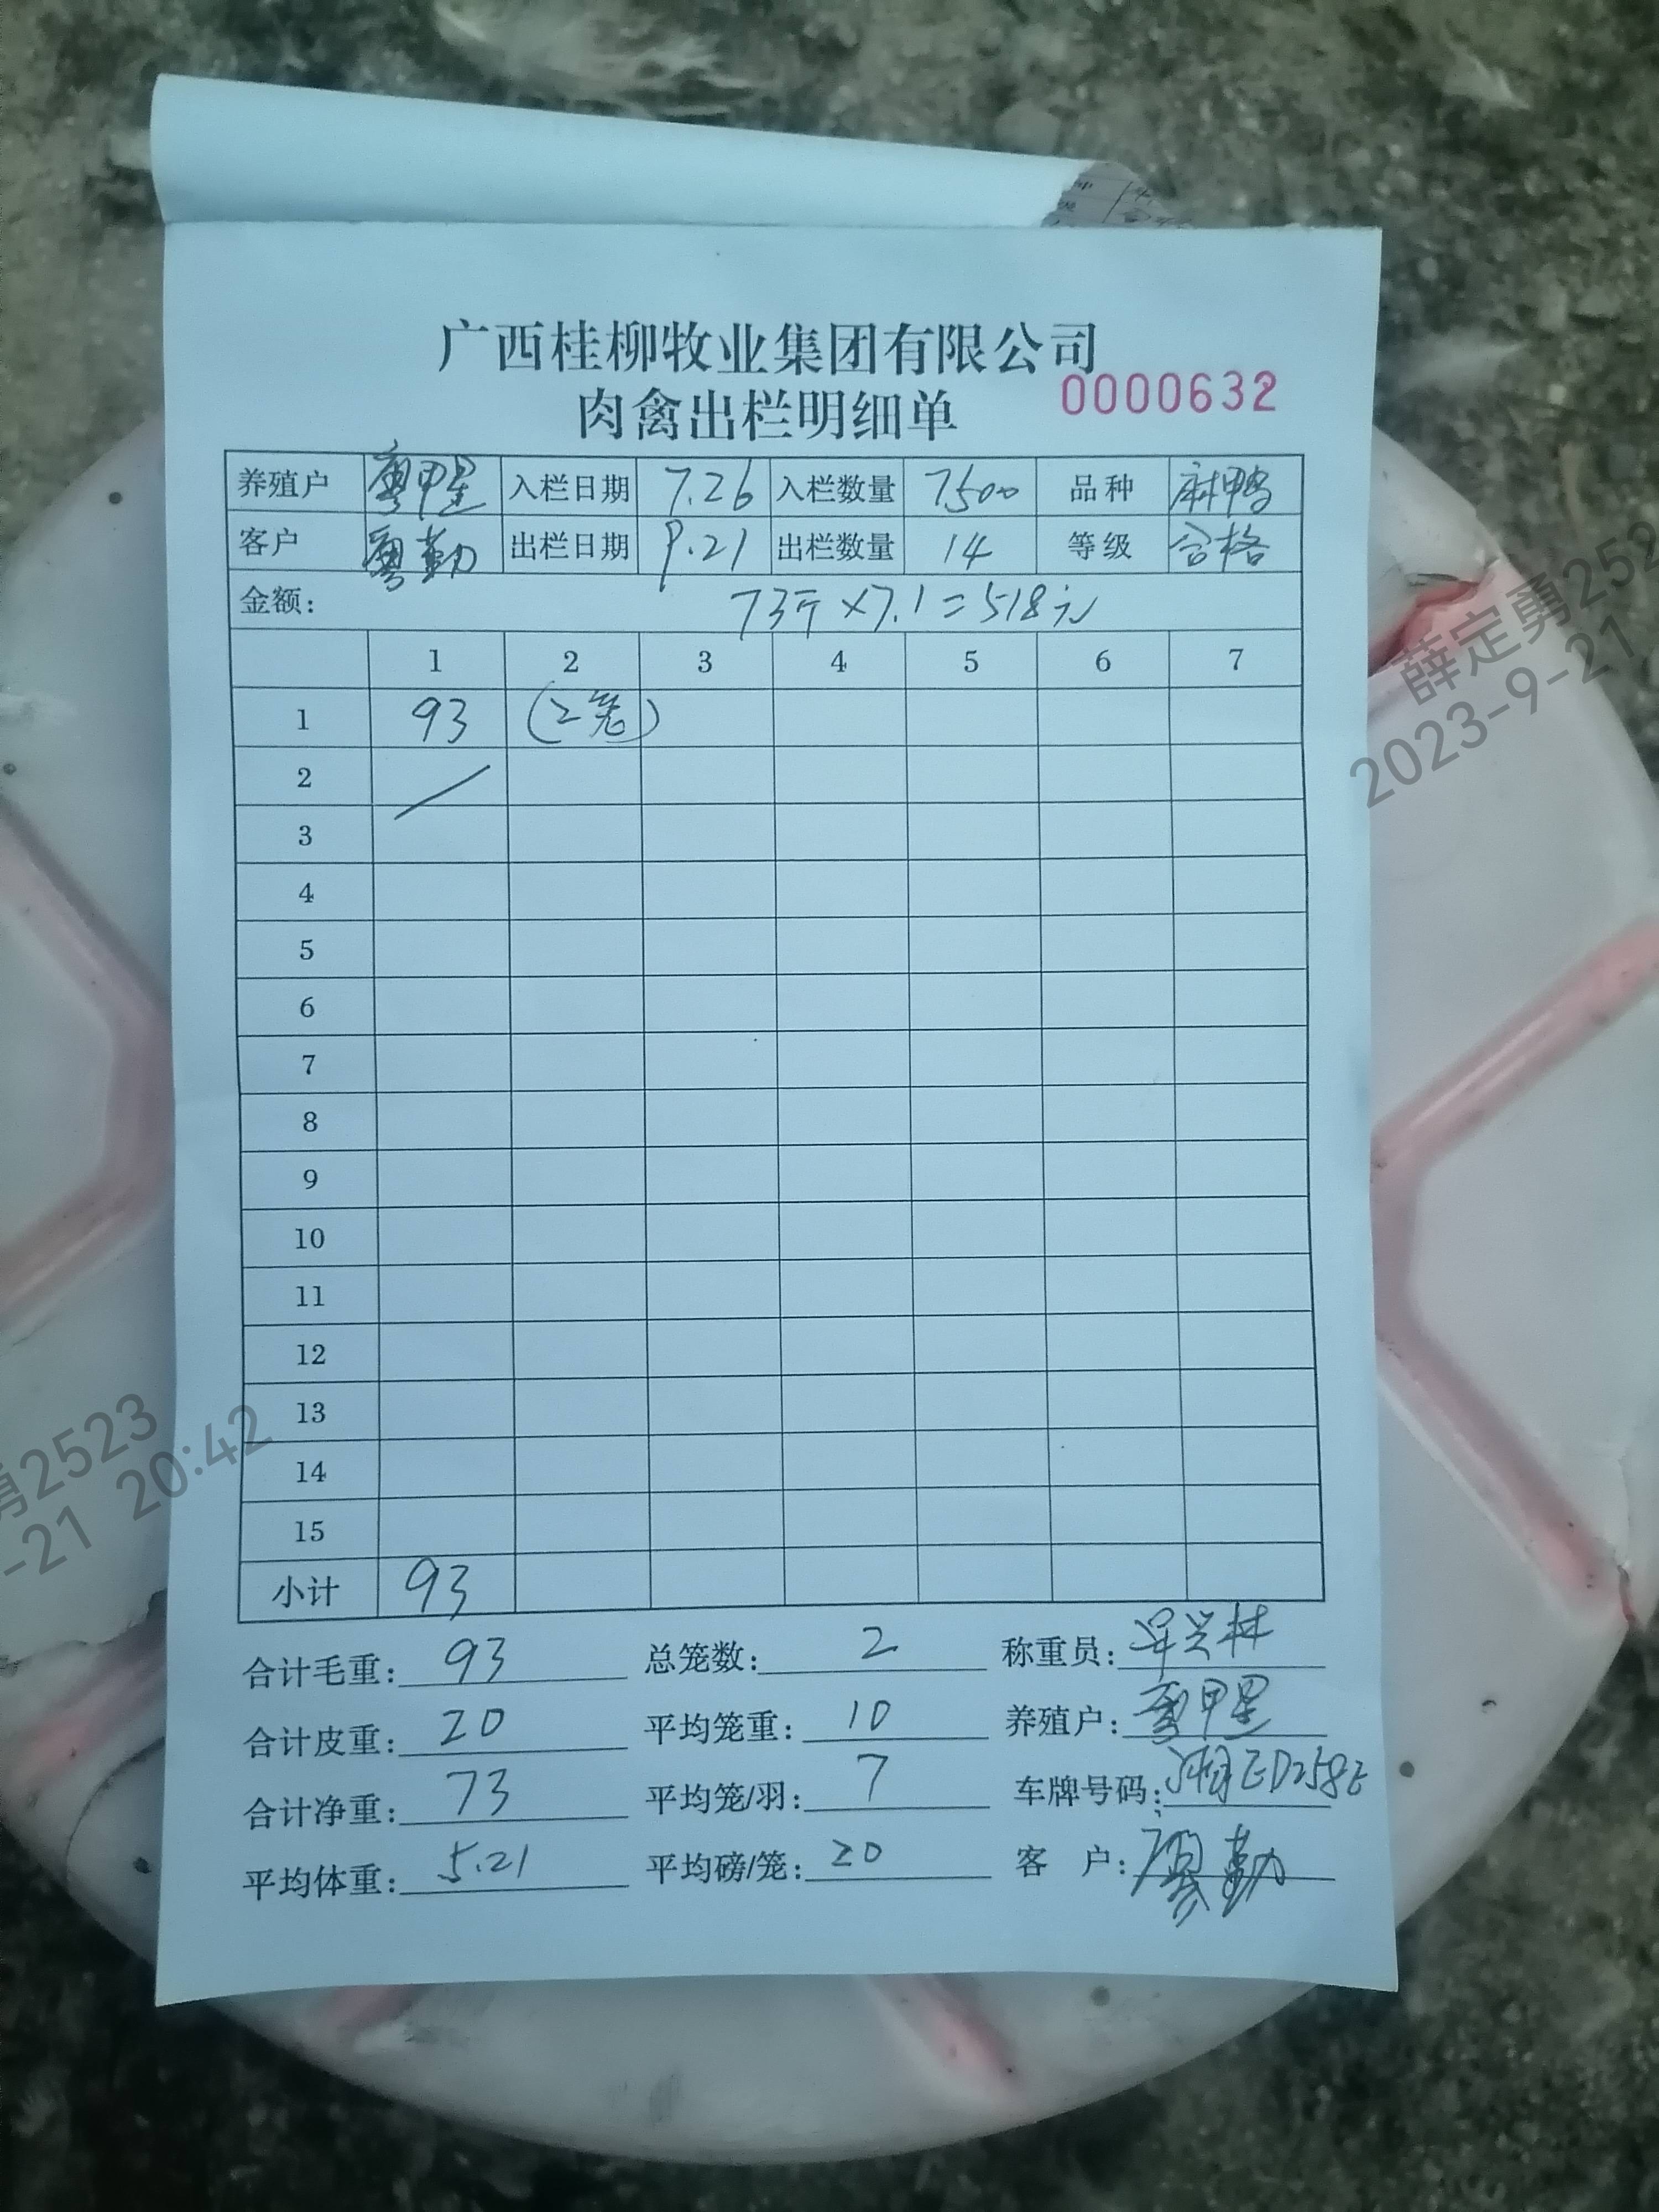 广西桂柳牧业集团有限公司
肉禽出栏明细单 0000632
养殖户 甲星 入栏日期 7.26 入栏数量 7500 品种 麻鸭
客户 勤 出栏日期 9.21 出栏数量 14 等级 合格
金额: 73斤×7.1=518元
1 2 3 4 5 6 7
1 93 (2笼)
2
3
4
5
6
7
8
9
10
11
12
13
14
15
小计 93
合计毛重: 93 总笼数: 2 称重员: 兴林
合计皮重: 20 平均笼重: 10 养殖户: 甲星
合计净重: 73 平均笼/羽: 7 车牌号码: 湘ED258
平均体重: 5.21 平均磅/笼: 20 客 户: 勤
薛定勇252
2023-9-21
勇2523
-21 20:42